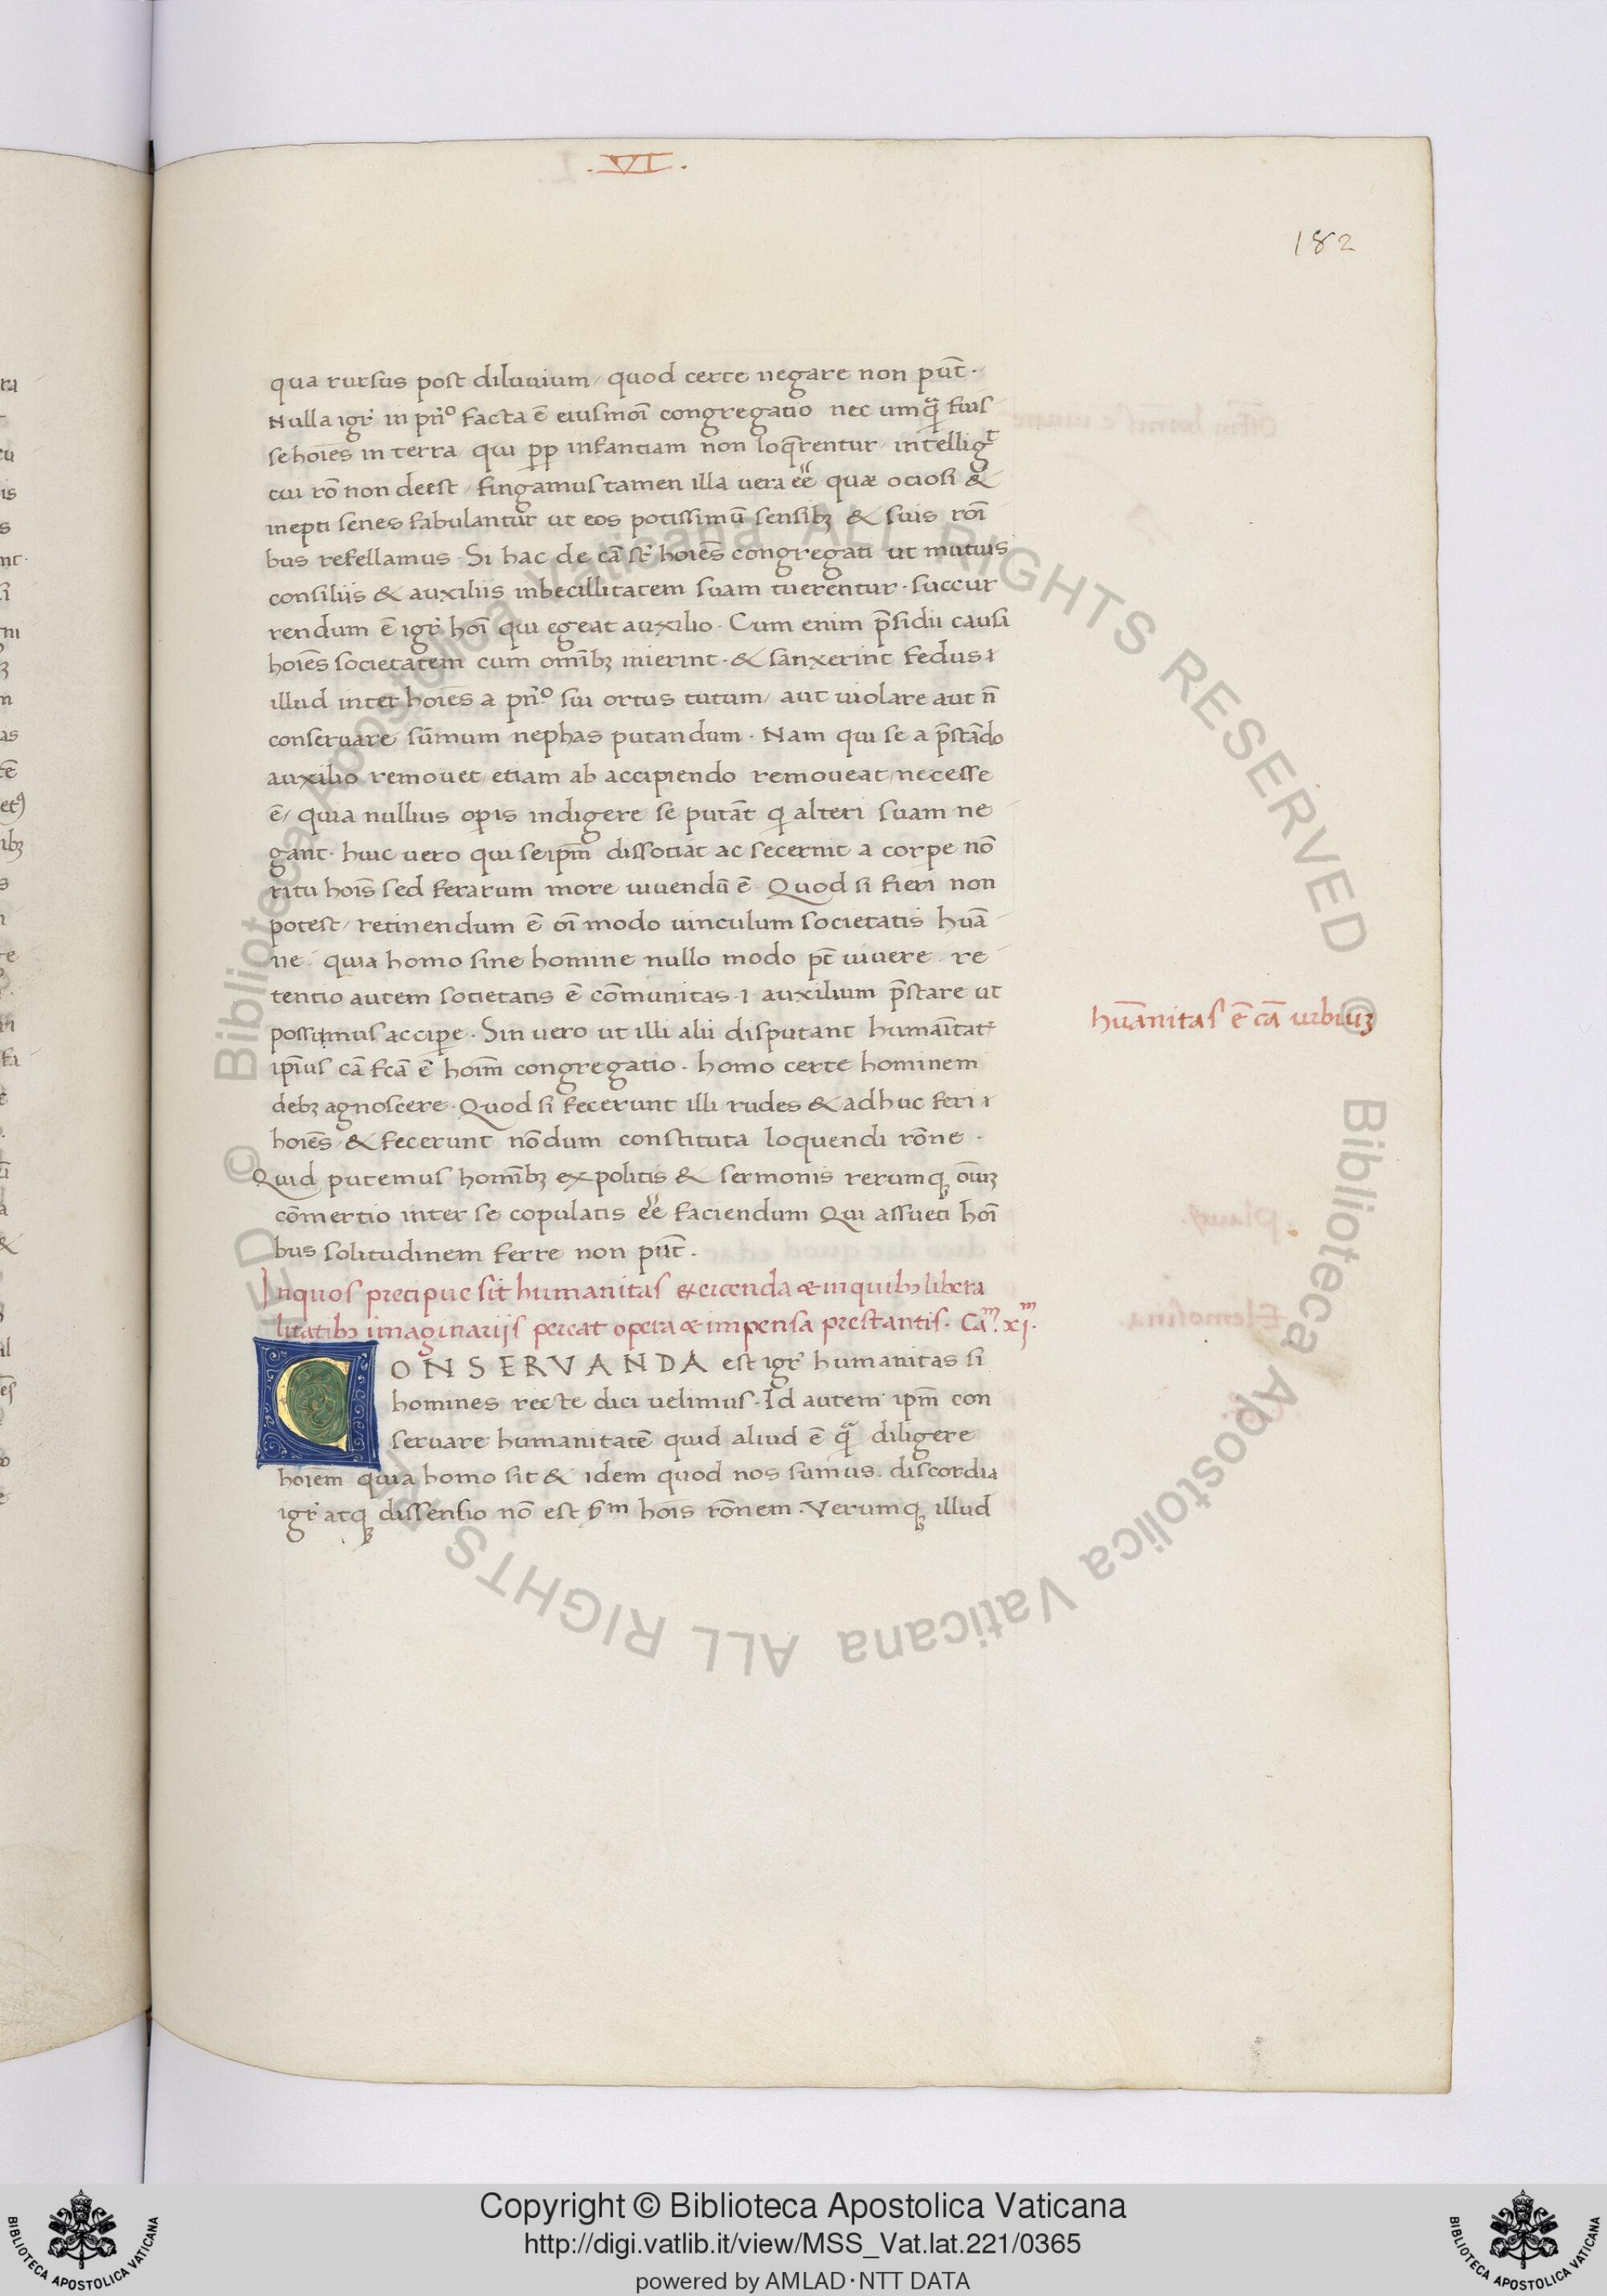 .VI.
182
qua rursus post diluuium / quod certe negare non pūt ·
Nulla igr̄ in prīº facta ē eiusmōi congregatio nec umq̄ fuis
se hoīes in terra / qui pp̄ infantiam non loq̄rentur / intelligt
cui rō non deest / fingamus tamen illa uera eē quæ ociosi &
inepti senes fabulantur ut eos potissimū sensibꝫ & suis rōi
bus refellamus · Si hac de cā st̄ hoīes congregati ut mutuis
consiliis & auxiliis inbecillitatem suam tuerentur · succur
rendum ē igr̄ hōi qui egeat auxilio · Cum enim p̄sidii causa
hoīes societatem cum om̄ibꝫ inierint · & sanxerint fedus ⁊
illud inter hoīes a prīº sui ortus tutum / aut uiolare aut n̄
conseruare sūmum nephas putandum · Nam qui se a p̄stādo
auxilio remouet / etiam ab accipiendo remoueat / necesse
ē / quia nullius opis indigere se putāt q̇ alteri suam ne
gant · huic uero qui seip̄m dissociat ac secernit a corpe nō
ritu hoīs sed ferarum more uiuendū ē · Quod si fieri non
potest / retinendum ē ōi modo uinculum societatis huā
ne · quia homo sine homine nullo modo pt̄ uiuere · re
tentio autem societatis ē cōmunitas · ⁊ auxilium p̄stare ut
possimus accipe · Sin uero ut illi alii disputant humāitatꝭ
ip̄ius cā fcā ē hoīm congregatio · homo certe hominem
debꝫ agnoscere · Quod si fecerunt illi rudes & adhuc feri ⁊
hoīes / & fecerunt nōdum constituta loquendi rōne ·
Quid putemus homībꝫ expolitis & sermonis rerumqꝫ oīuꝫ
cōmertio inter se copulatis eē faciendum Qui assueti hōi
bus solitudinem ferre non pūt ·
In quos precipue sit humanitas exercenda & in quibꝫ libera
litatibꝫ imaginariis pereat opera & impensa prestantis · Cam. xjm.
CONSERVANDA est igr̄ humanitas si
homines recte dici uelimus · Id autem ip̄m con
seruare humanitatē quid aliud ē q̄ diligere
hoīem quia homo sit & idem quod nos sumus · discordia
igr̄ atqꝫ dissensio nō est ẜm hoīs rōnem · Verumqꝫ illud
huānitas ē cā urbiuꝫ
© Biblioteca Apostolica Vaticana ALL RIGHTS RESERVED
© Biblioteca Apostolica Vaticana ALL RIGHTS RESERVED
Copyright © Biblioteca Apostolica Vaticana
http://digi.vatlib.it/view/MSS_Vat.lat.221/0365
powered by AMLAD·NTT DATA
BIBLIOTECA APOSTOLICA VATICANA
BIBLIOTECA APOSTOLICA VATICANA